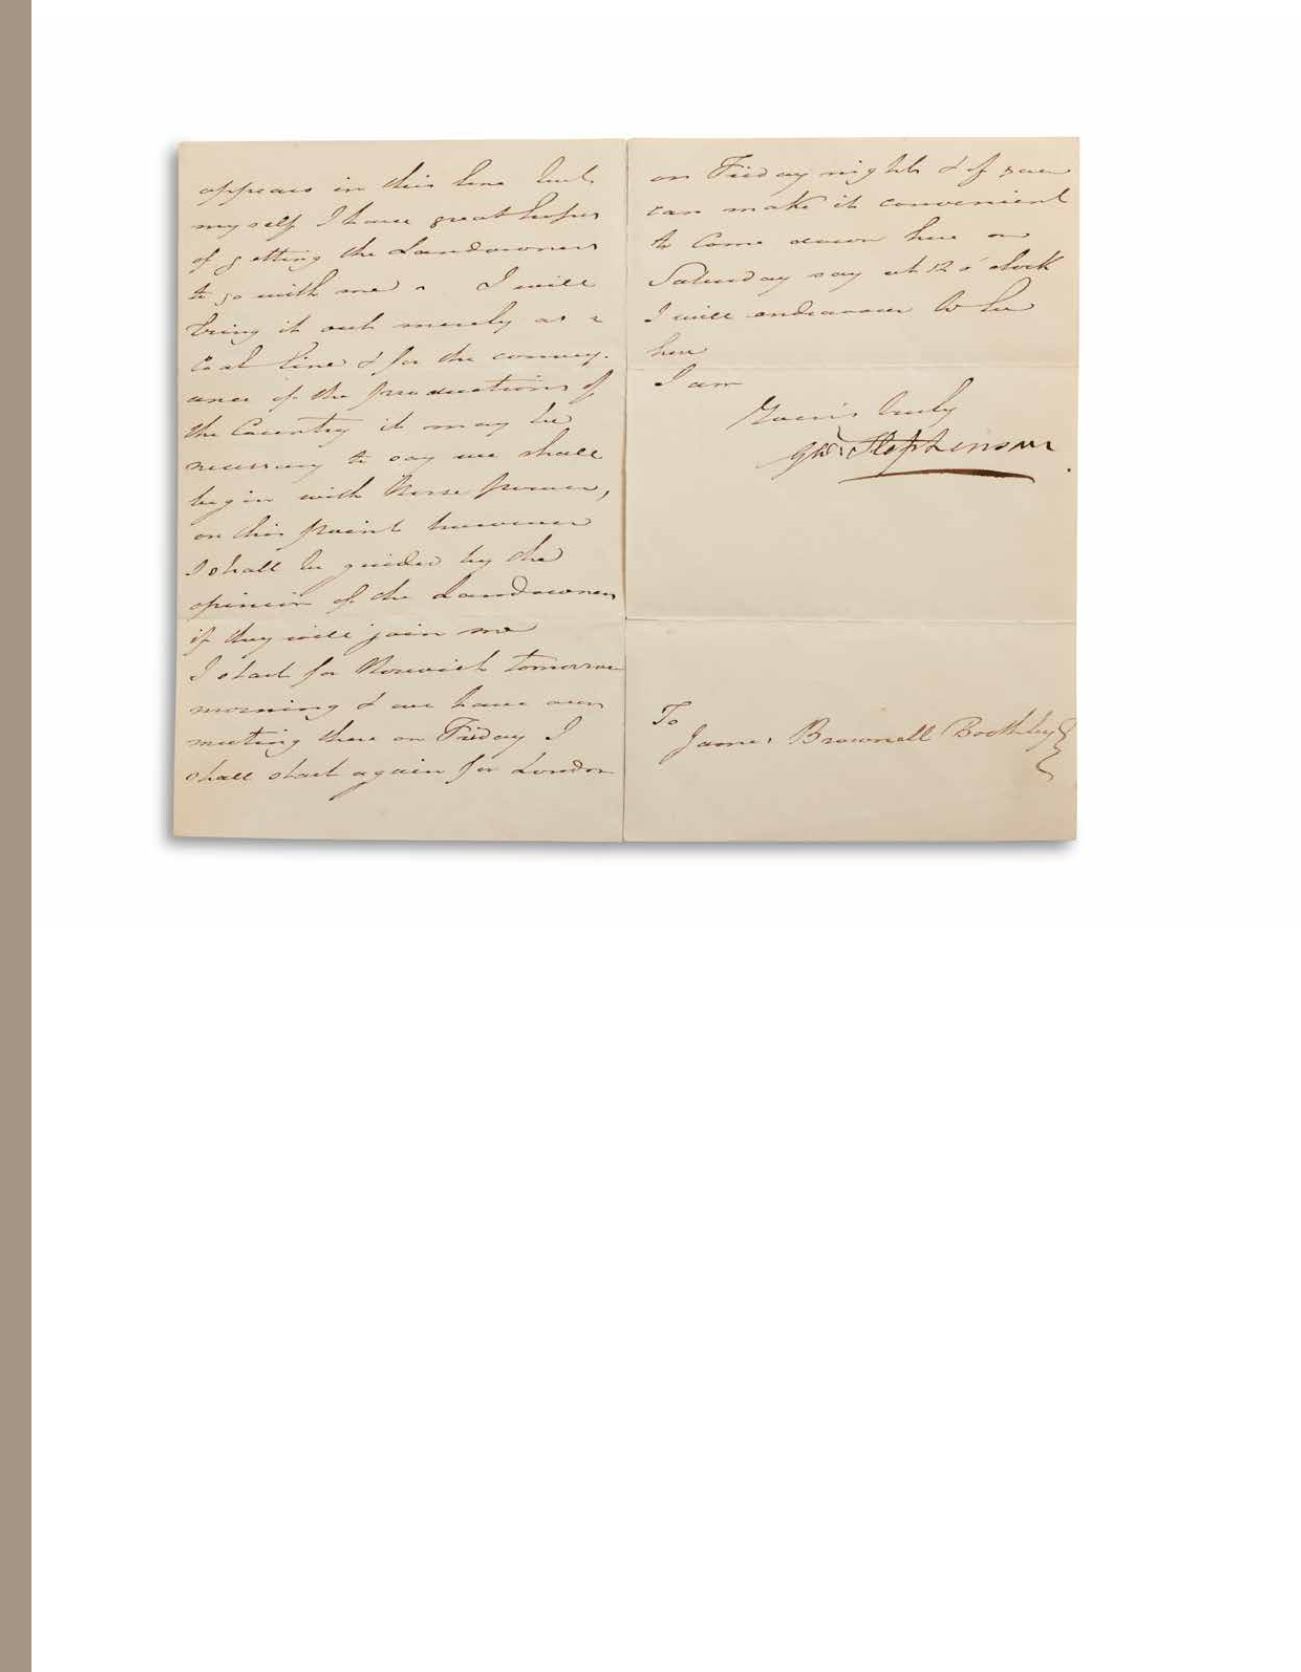 appears in this line but
myself I have great hopes
of getting the Landowners
to go with me I will
bring it out merely as a
Coal line & for the convey-
ance of the productions of
the Country it may be
necessary to say we shall
begin with Horse power,
on this point however
I shall be guided by the
opinion of the Landowners
if they will join me
I start for Norwich tomorrow
morning & we have our
meeting there on Friday I
shall start again for London
on Friday night & if you
can make it convenient
to Come down here on
Saturday say at 12 o'clock
I will endeavour to be
here
I am
Yours truly
Geo Stephenson
To
James Brownell Boothby